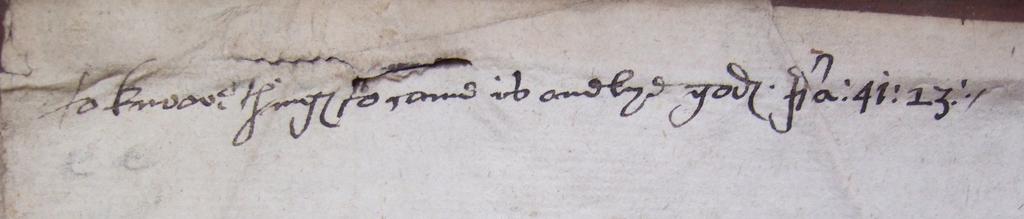 to knowe things to come is onelye gods. Isa: 41: 23: